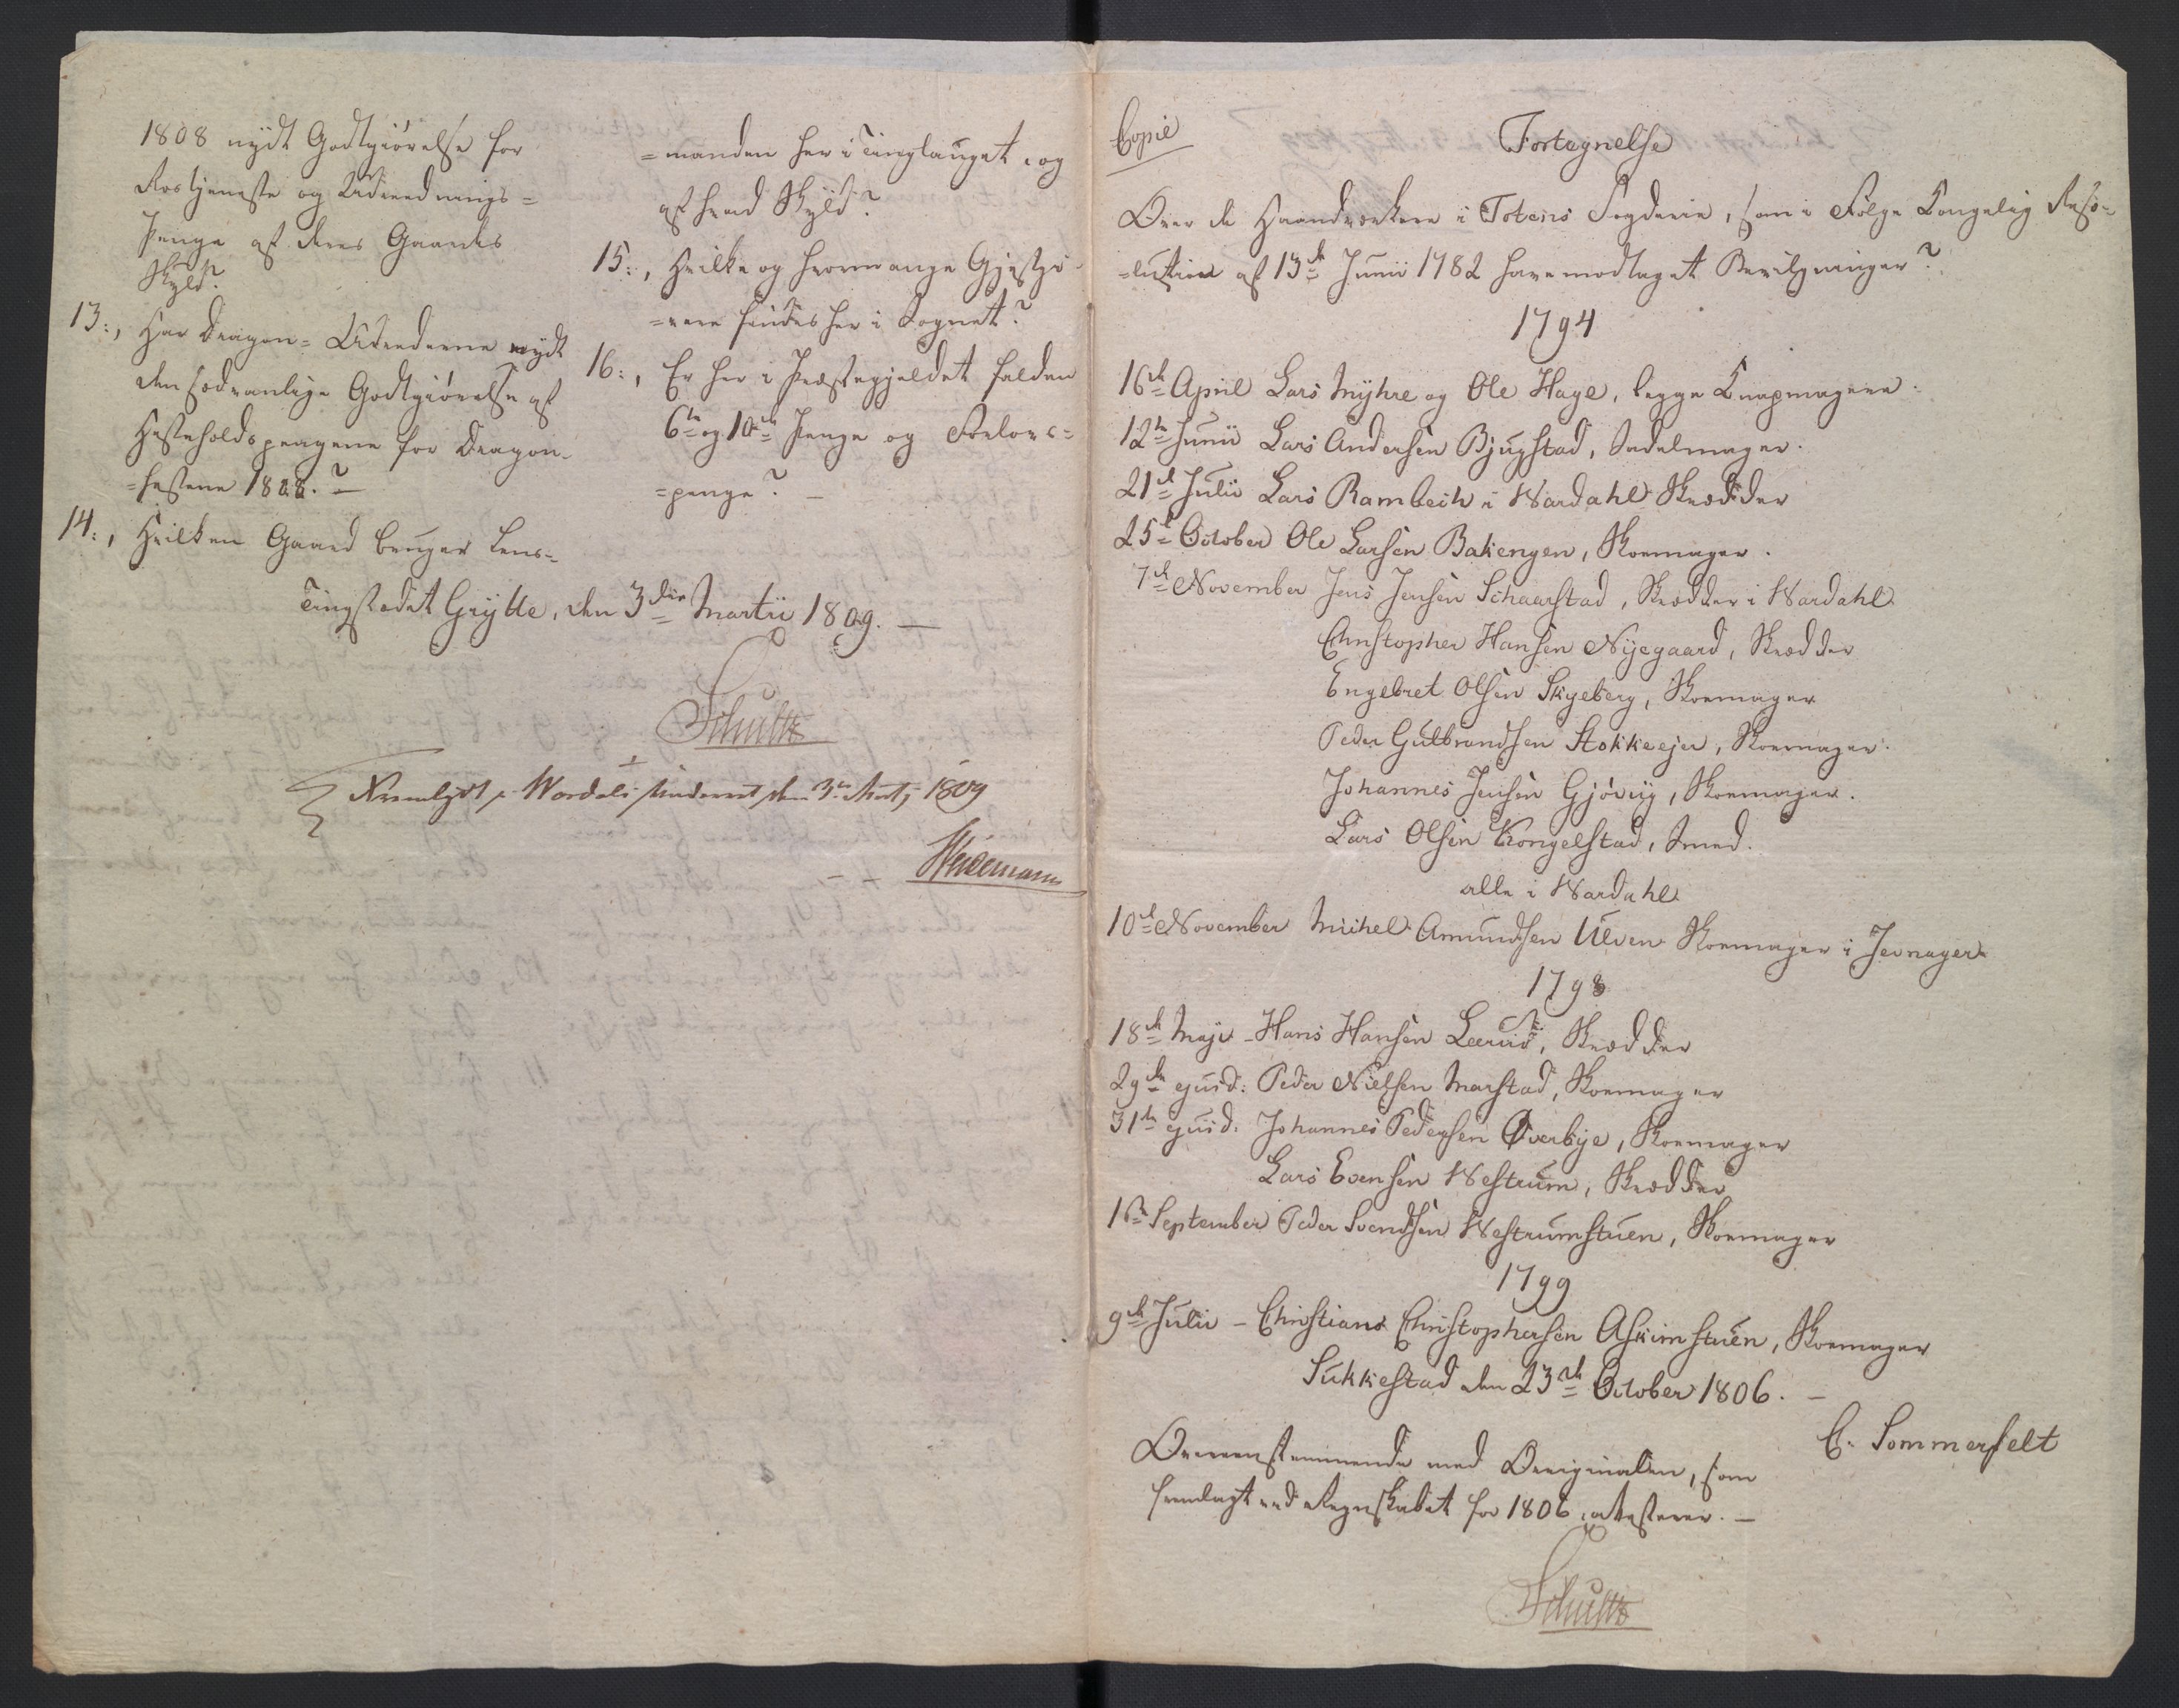 1808 nydt Godtgiörelse for
Rostjeneste og Udrednings=
Penge af deres Gaardes
Skyld?
13:, Har Dragon=Udrederne nydt
den sædvanlige Godtgiörelse af
Hesteholdspengene for Dragon=
=hestene 1808.? —
14:, Hvilken Gaard bruger Lens=
=manden her i Tinglauget, og
af hvad Skyld?
15:, Hvilke og hvormange Gjestgi=
=vere findes her i Sognet?
16:, Er her i Præstegjeldet falden
6te og 10de Penge og Forlovs=
=penge? —
Tingstædet Grytte, den 3die Martii 1809. —
Schultz
Fremlagt i Wardals den 3de Mart. 1809
Weidemann
Copie
Fortegnelse
Over de Haandværkere i Totens Fogderie, som i Følge Kongelig Reso=
=lution af 13de Junii 1782 have modtaget Bevilgninger?
1794
16de April Lars Myhre og Ole Hage, begge Knapmagere.
12te Junii Lars Andersen Bjugstad, Sadelmager.
21de Julii Lars Rambech i Wardahl Skrædder
25de October Ole Larsen Bakengen, Skoemager.
7de November Jens Jensen Schaarstad, Skrædder i Wardahl
Christopher Hansen Nyegaard, Skrædder
Engebret Olsen Skyeberg, Skoemager
Peder Gulbrandsen Stokkeejer, Skoemager.
Johannes Jensen Gjövig, Skoemager.
Lars Olsen Kongelstad, Smed.
alle i Wardahl
10de November Michel Amundsen Ulven Skoemager i Jevnager
1798
18de Maji - Hans Hansen Leerud, Skrædder
29de ejusd: Peder Nielsen Marstad, Skoemager
31te ejusd: Johannes Pedersen Øverbye, Skoemager
Lars Evensen Westrum, Skrædder
1te September Peder Svendsen Westrumstuen, Skoemager
1799
9de Julii - Christian Christophersen Askimstuen, Skoemager
Sukkestad den 23de October 1806. —
C. Sommerfelt
Overeensstemmende med Originalen, som
fremlagt ved Regnskabet for 1806, attesterer. —
Schultz